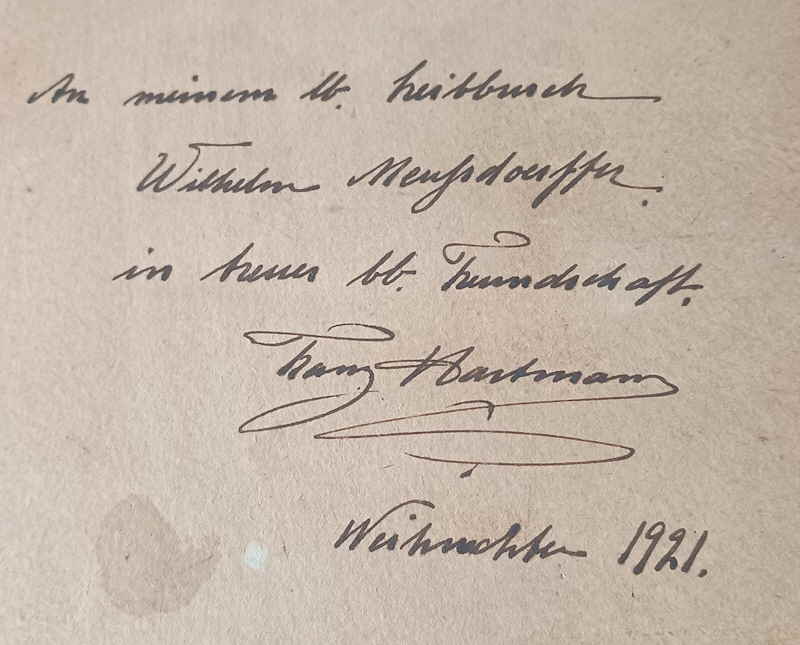 An meinem lb. Leibbursch
Wilhelm Meussdoerffer.
in treuer bb. Freundschaft.
Franz Hartmann
Weihnachten 1921.